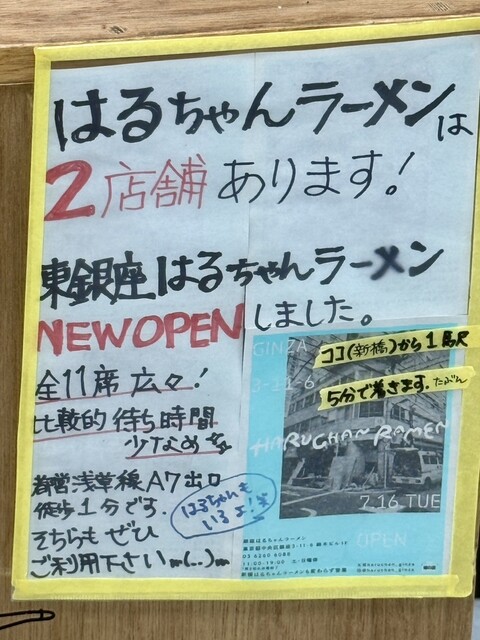 はるちゃんラーメンは
2店舗あります!
東銀座はるちゃんラーメン
NEW OPENしました。
ココ(新橋)から1駅
5分で着きます。たぶん
全11席 広々!
比較的 待ち時間
少なめ
都営浅草線 A7出口
徒歩1分です。
そちらも ぜひ
ご利用下さい m(..)m
はるちゃんも
いるよ!
GINZA
HARUCHAN RAMEN
7.16 TUE
OPEN
銀座はるちゃんラーメン
03 6260 6080
11:00-19:00